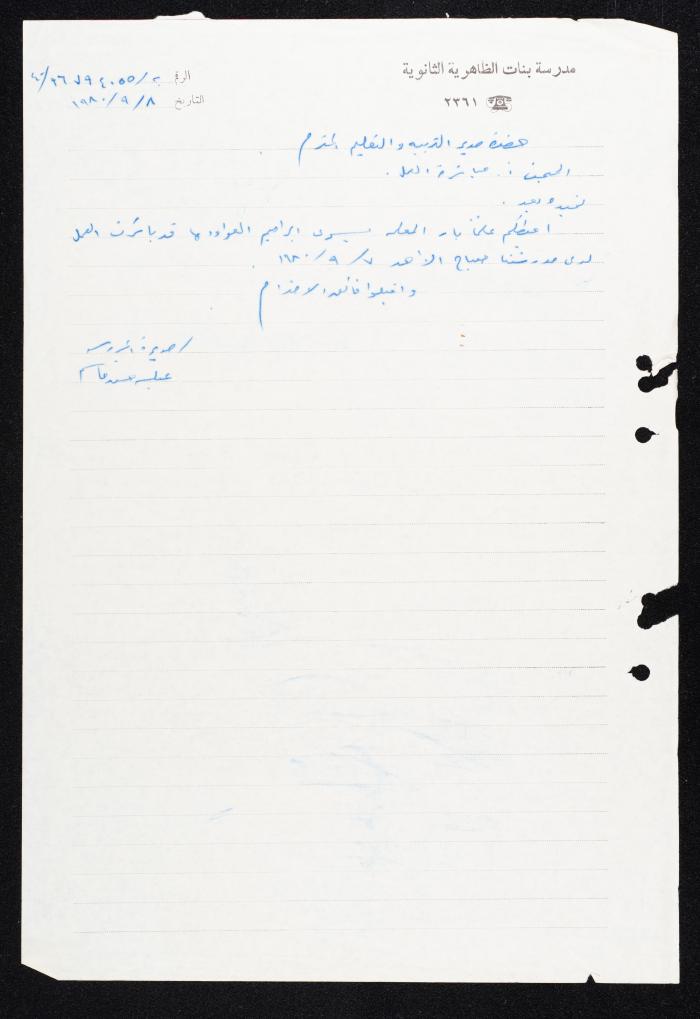 مدرسة بنات الظاهرية الثانوية
٢٣٦١
الرقم
التاريخ ١٩٨٠/٩/٨
حضرة مدير التربية والتعليم المحترم
الموضوع : مباشرة العمل .
تحية وبعد .
احيطكم علماً بأن المعلمة يسرى ابراهيم العواوده قد باشرت العمل
لدى مدرستنا صباح الأحد ١٩٨٠/٩/٧ .
واقبلوا فائق الاحترام
مديرة المدرسة